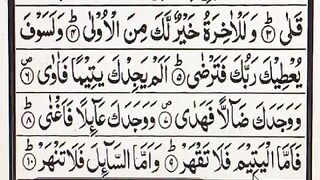 قَلٰى ۝٣ وَلَلْاٰخِرَةُ خَيْرٌ لَّكَ مِنَ الْاُوْلٰى ۝٤ وَلَسَوْفَ
يُعْطِيْكَ رَبُّكَ فَتَرْضٰى ۝٥ اَلَمْ يَجِدْكَ يَتِيْمًا فَاٰوٰى ۝٦
وَوَجَدَكَ ضَآلًّا فَهَدٰى ۝٧ وَوَجَدَكَ عَآئِلًا فَاَغْنٰى ۝٨
فَاَمَّا الْيَتِيْمَ فَلَا تَقْهَرْ ۝٩ وَاَمَّا السَّآئِلَ فَلَا تَنْهَرْ ۝١٠